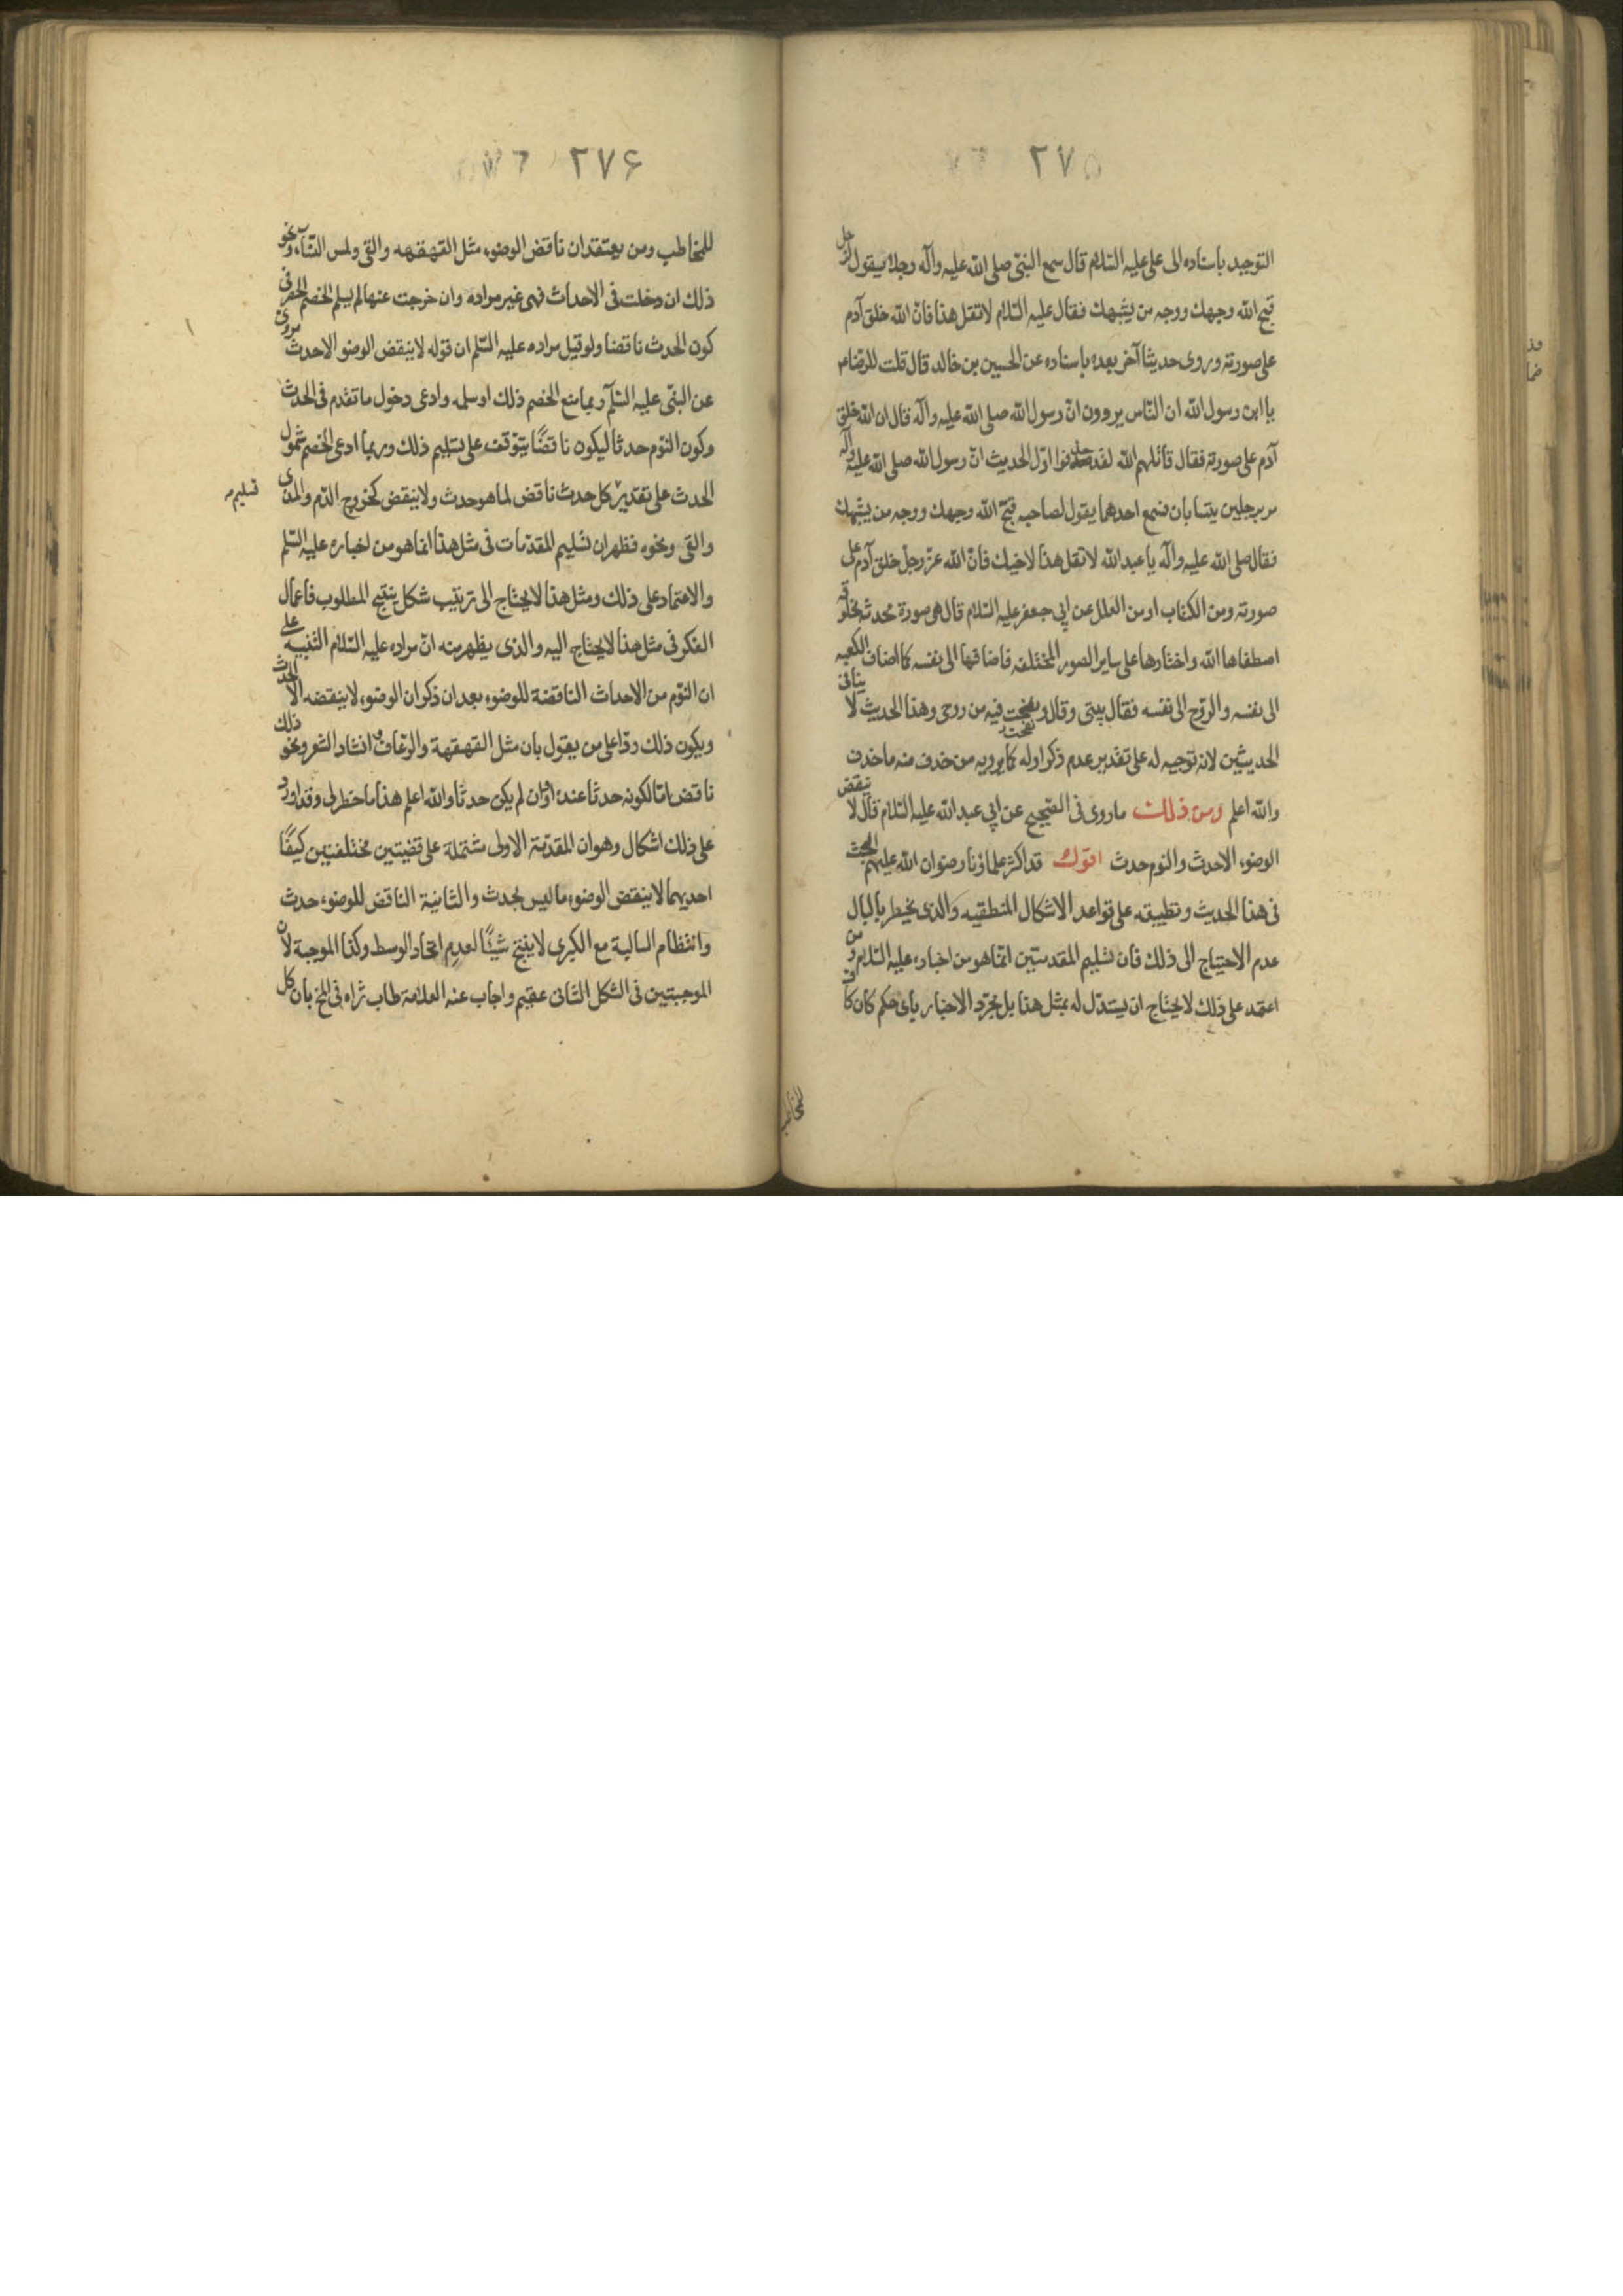 ٢٧٥
التوحيد باسناده الى على عليه السّلام قال سمع النبىّ صلى الله عليه وآله رجلا يقول لرجل
قبح الله وجهك ووجه من يشبهك فقال عليه السّلام لا تقل هذا فانّ الله خلق آدم
على صورته وروى حديثا آخر بعده باسناده عن الحسين بن خالد قال قلت للرضاء
يا ابن رسول الله ان النّاس يروون انّ رسول الله صلى الله عليه وآله قال ان الله خلق
آدم على صورته فقال قاتلهم الله لقد حذفوا اوّل الحديث انّ رسول الله صلى الله عليه وآله
مر برجلين يتسابان فسمع احدهما يقول لصاحبه قبّح الله وجهك ووجه من يشبهك
فقال صلى الله عليه وآله يا عبد الله لا تقل هذا لاخيك فانّ الله عزّ وجلّ خلق آدم على
صورته ومن الكتاب او من العلل عن ابى جعفر عليه السّلام قال هى صورة محدثه مخلوقه
اصطفاها الله واختارها على ساير الصور المختلفه فاضافها الى نفسه كما اضاف الكعبه
الى نفسه والروّح الى نفسه فقال بيتى وقال ونفخت فيه من روحى وهذا الحديث لا ينافى
الحديثين لانه توجيه له على تقدير عدم ذكر اوله كما يرويه من حذف منه ما حذف
والله اعلم ومن ذلك ماروى فى الصّحيح عن ابى عبد الله عليه السّلام قال لا ينقض
الوضوء الا حدث والنوم حدث اقول قد اكثر علماؤنا رضوان الله عليهم البحث
فى هذا الحديث وتطبيقه على قواعد الاشكال المنطقيه والذى يخطر بالبال
عدم الاحتياج الى ذلك فان تسليم المقدمتين انّما هو من اخباره عليه السّلام ومن
اعتمد على ذلك لا يحتاج ان يستدّل له بمثل هذا بل بمجرّد الاخبار باى حكم كان كاف
للمخاطب
٢٧۶
للمخاطب ومن يعتقد ان ناقض الوضوء مثل القهقهه والقى ولمس النسّآء ونحو
ذلك ان دخلت فى الاحداث فهى غير مراده وان خرجت عنها لم يسلم الخصم الحصر فى
كون الحدث ناقضا ولو قيل مراده عليه السّلم ان قوله لا ينقض الوضو الا حدث مروىّ
عن النبىّ عليه السّلم وبما منع الخصم ذلك او سلمه وادعى دخول ما تقدم فى الحدث
وكون النوّم حدثا ليكون ناقضًا يتوّقف على تسليم ذلك وربما ادعى الخصم شمول
الحدث على تقدير كل حدث ناقض لما هو حدث ولا ينقض كخروج الدّم والمذى
تسليم
والقى ونحوه فظهر ان تسليم المقدّمات فى مثل هذا انما هو من اخباره عليه السّلم
والاعتماد على ذلك ومثل هذا لا يحتاج الى ترتيب شكل ينتج المطلوب فاعمال
الفكر فى مثل هذا لا يحتاج اليه والذى يظهر منه انّ مراده عليه السّلام التنبيه على
ان النوّم من الاحداث الناقضة للوضوء بعد ان ذكر ان الوضوء لا ينقضه الا الحدث
ويكون ذلك ردّا على من يقول بان مثل القهقهة والرّعاف وانشاد الشعر ونحو ذلك
ناقض امّا لكونه حدثا عنده او وان لم يكن حدثا والله اعلم هذا ما خطر لى وقد اورد
على ذلك اشكال وهو ان المقدّمة الاولى مشتملة على قضيتين مختلفتين كيفًا
احديهما لا ينقض الوضوء ما ليس بحدث والثانية الناقض للوضوء حدث
وانتظام السالبة مع الكبرى لا ينتج شيئًا لعدم اتحاد الوسط وكذا الموجبة لان
الموجبتين فى الشكل الثانى عقيم واجاب عنه العلامة طاب ثراه فى المخ بان كل